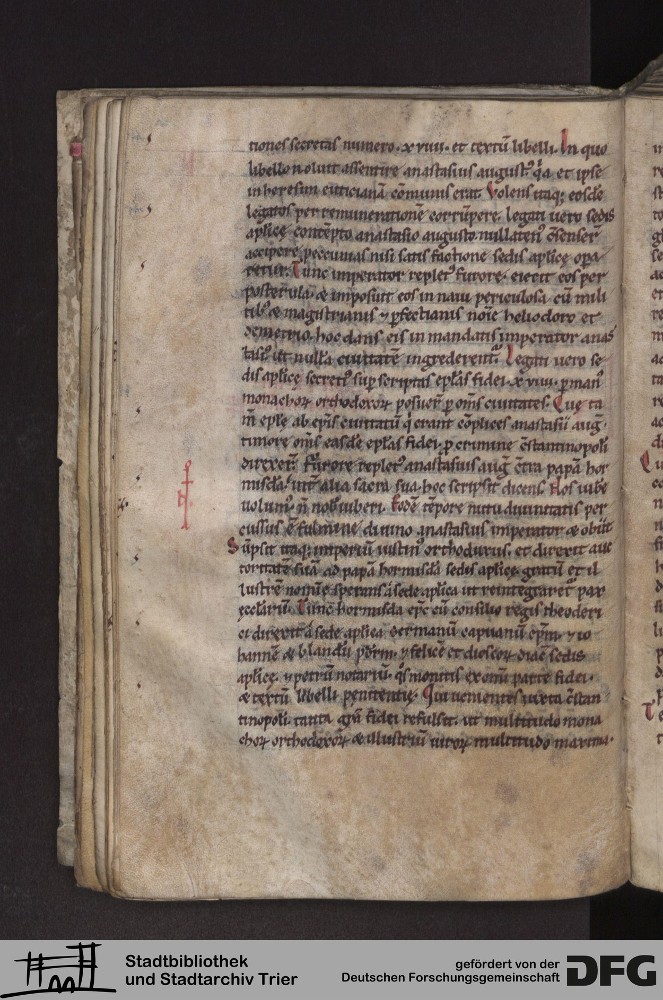 tiones secretas numero. xviiii. et textū libelli. In quo
libello noluit assentire anastasius august᷒. q̄a et ipse
in heresim euticianā cōmunis erat. Volens itaq; eosdē
legatos per remunerationē corrūpere. legati uero sedis
aplicę contēpto anastasio augusto nullatenꝰ c̄senserꝭ
accipere peccunias nisi satis factione sedis aplicę opa
retur. Tunc imperator repletꝰ furore. eiecit eos per
posterula. & imposuit eos in naui periculosa cū mili
tibꝰ & magistrianis ⁊ p̄fectianis noīe heliodoro et
demetrio. hoc dans eis in mandatis imperator anas
tasiꝰ. ut nullā ciuitatē ingrederentᷣ. Legati uero se
dis aplicę secretiꝰ sup scriptas ep̄las fidei. xviiii. p manꝰ
monachoꝝ orthodoxoꝝ posuer̄ p om̄s ciuitates. Que ta
m̄ ep̄le ab ep̄is ciuitatū q̇ erant cōplices anastasii auḡ.
timore om̄s easdē ep̄las fidei. p crimine c̄stantinopoli
direxer̄t. Furore repletꝰ anastasius auḡ. c̄tra papā hor
misdā. int̄ alia sacra sua. hoc scripsit dicens. Nos iube
uolumꝰ. n̄ nob̄ iuberi. Eodē tēpore nutu diuinitatis per
cussus ē fulmine diuino anastasius imperator & obiit
Sūpsit itaq; imperiū iustinꝰ orthodoxus. et direxit auc
toritatē suā ad papā hormisdā sedis aplicę gratū et il
lustrē nomine sperans a sede aplica ut reintegraretᷣ pax
ęcclarū. Tunc hormisda ep̄c cū consilio regis theoderi
ci direxit a sede aplica germanū capuanū ep̄m. ⁊ io
hannē & blandū p̄brm. ⁊ felicē et dioscoꝝ diac̄ sedis
aplicę. ⁊ petrū notariū. q̊s monitis ex omī parte fidei.
& textū libelli penitentię. Qui uenientes iuxta c̄stan
tinopoli. tanta gr̄a fidei refulsit. ut multitudo mona
choꝝ orthodoxoꝝ & illustriū uiroꝝ multitudo maxima.
Stadtbibliothek
und Stadtarchiv Trier
gefördert von der
Deutschen Forschungsgemeinschaft DFG